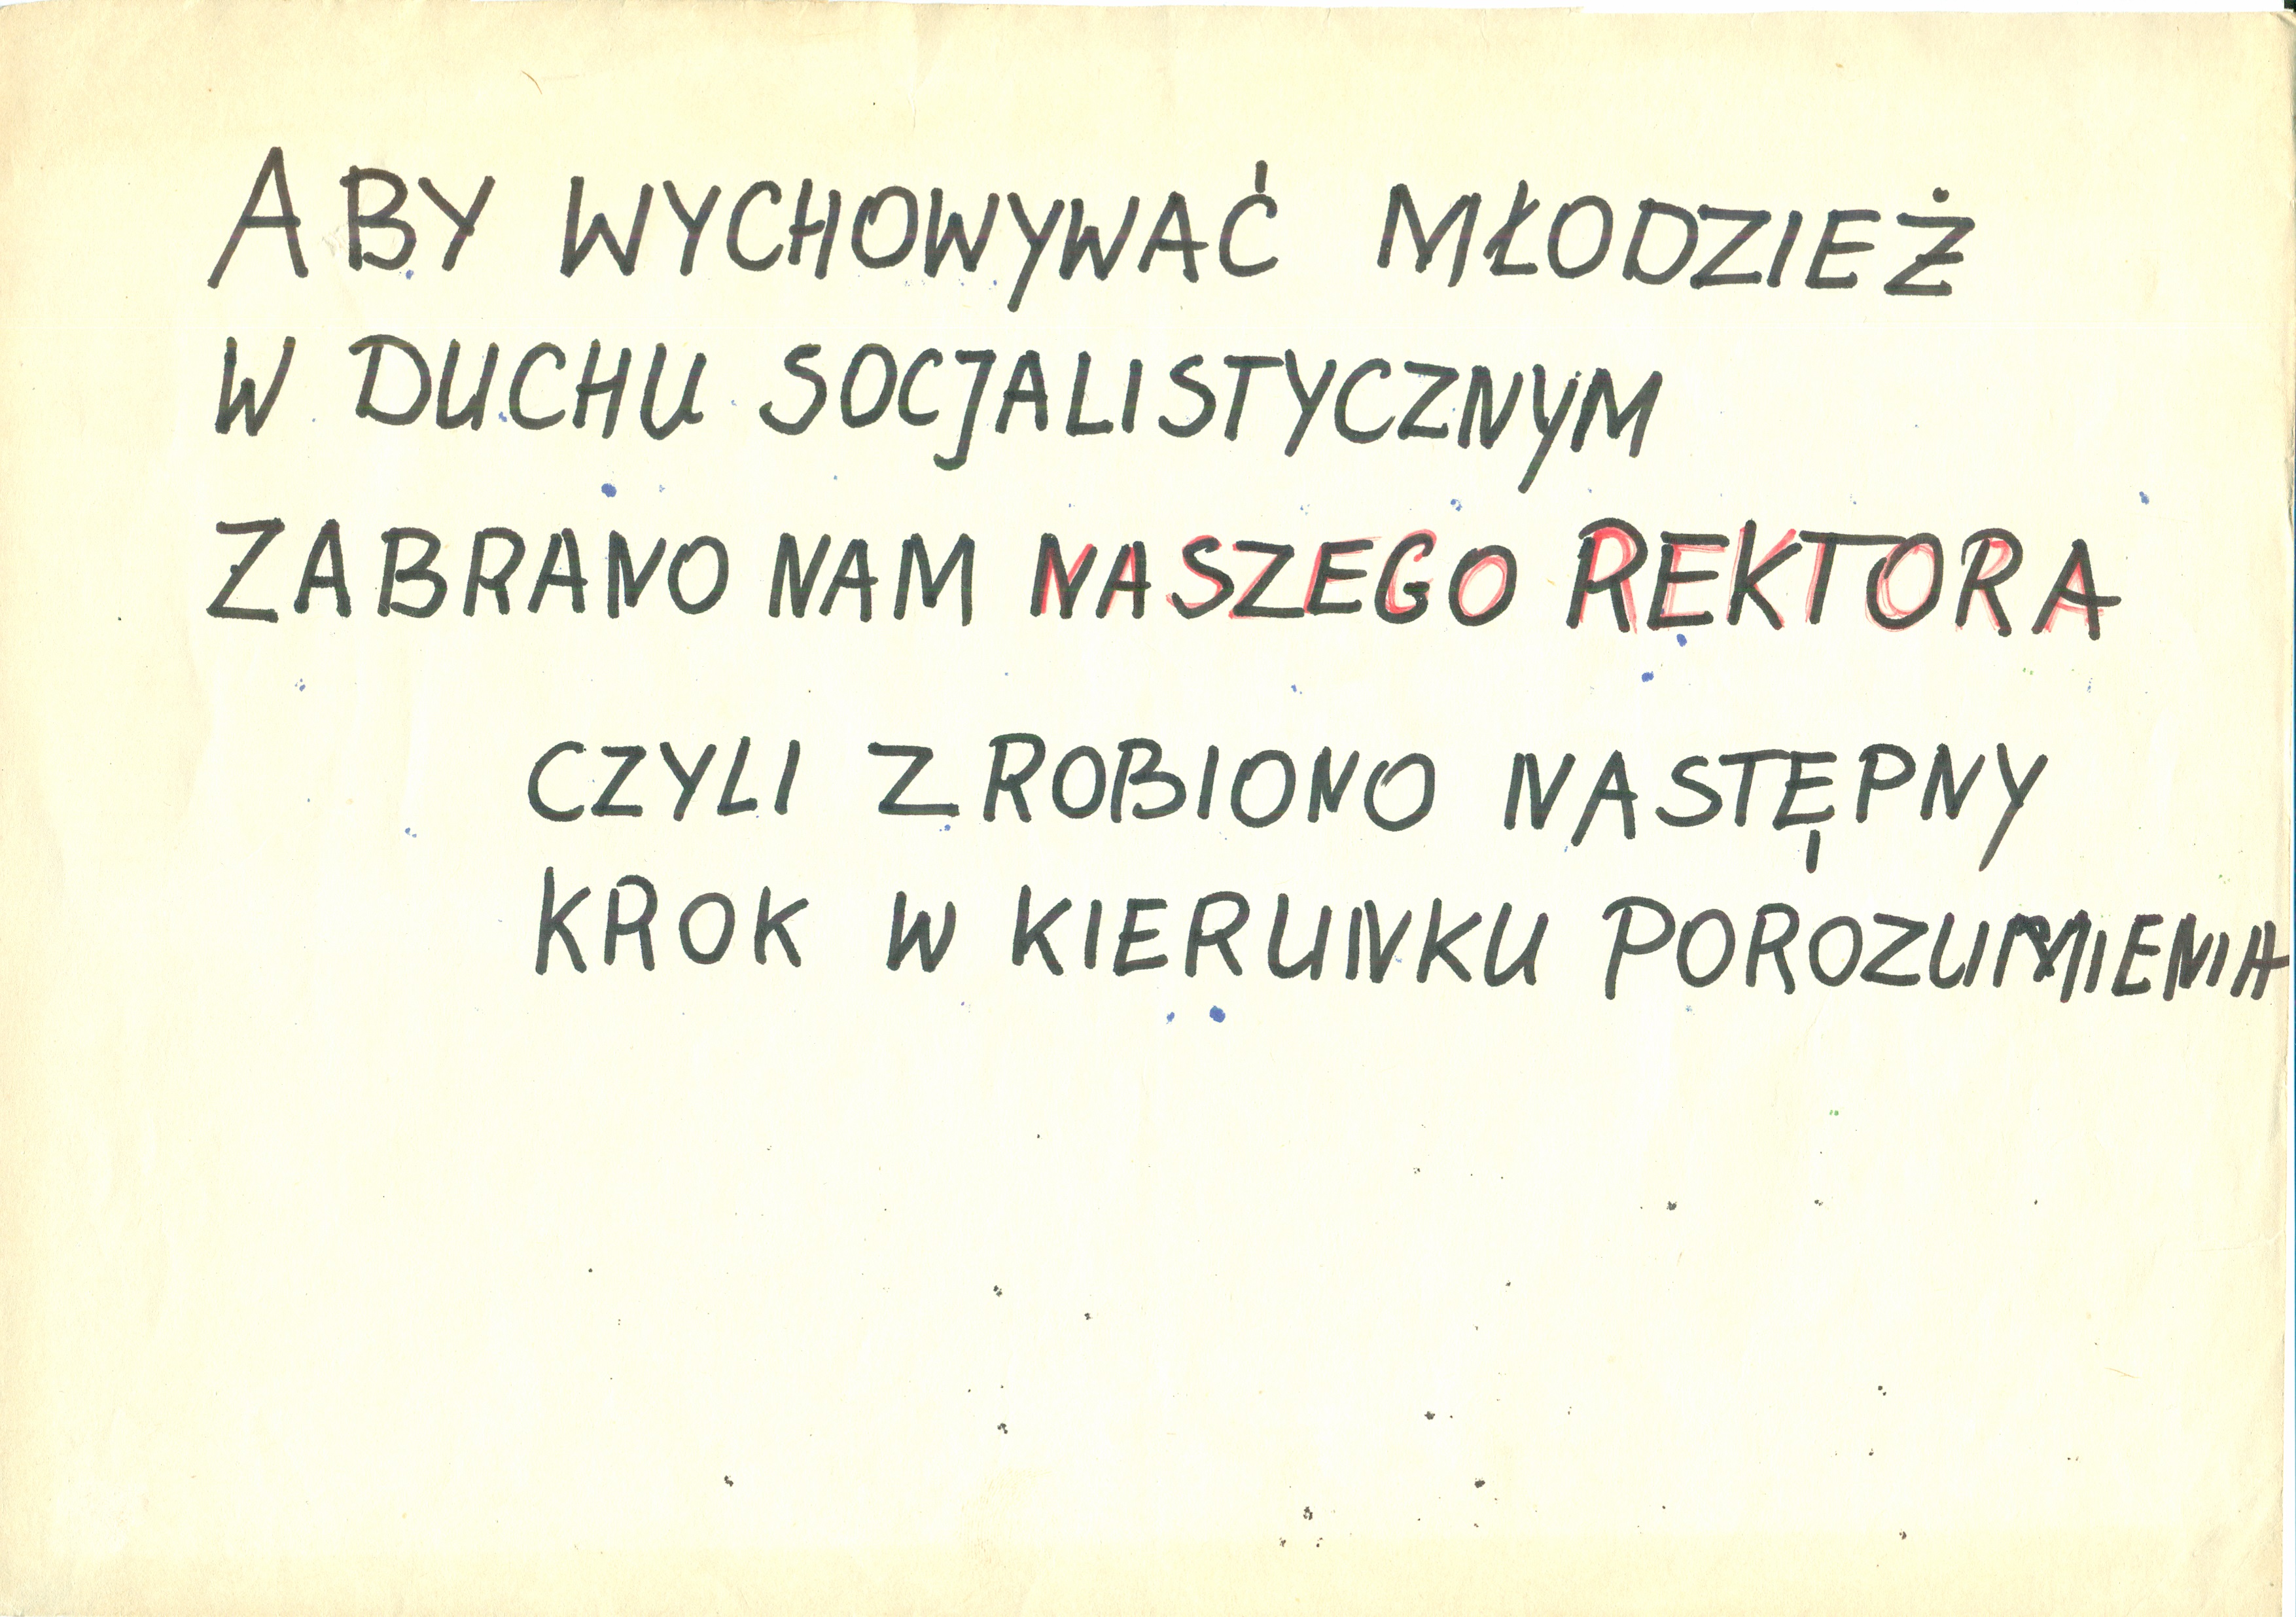 ABY WYCHOWYWAĆ MŁODZIEŻ
W DUCHU SOCJALISTYCZNYM
ZABRANO NAM NASZEGO REKTORA
CZYLI ZROBIONO NASTĘPNY
KROK W KIERUNKU POROZUMIENIA